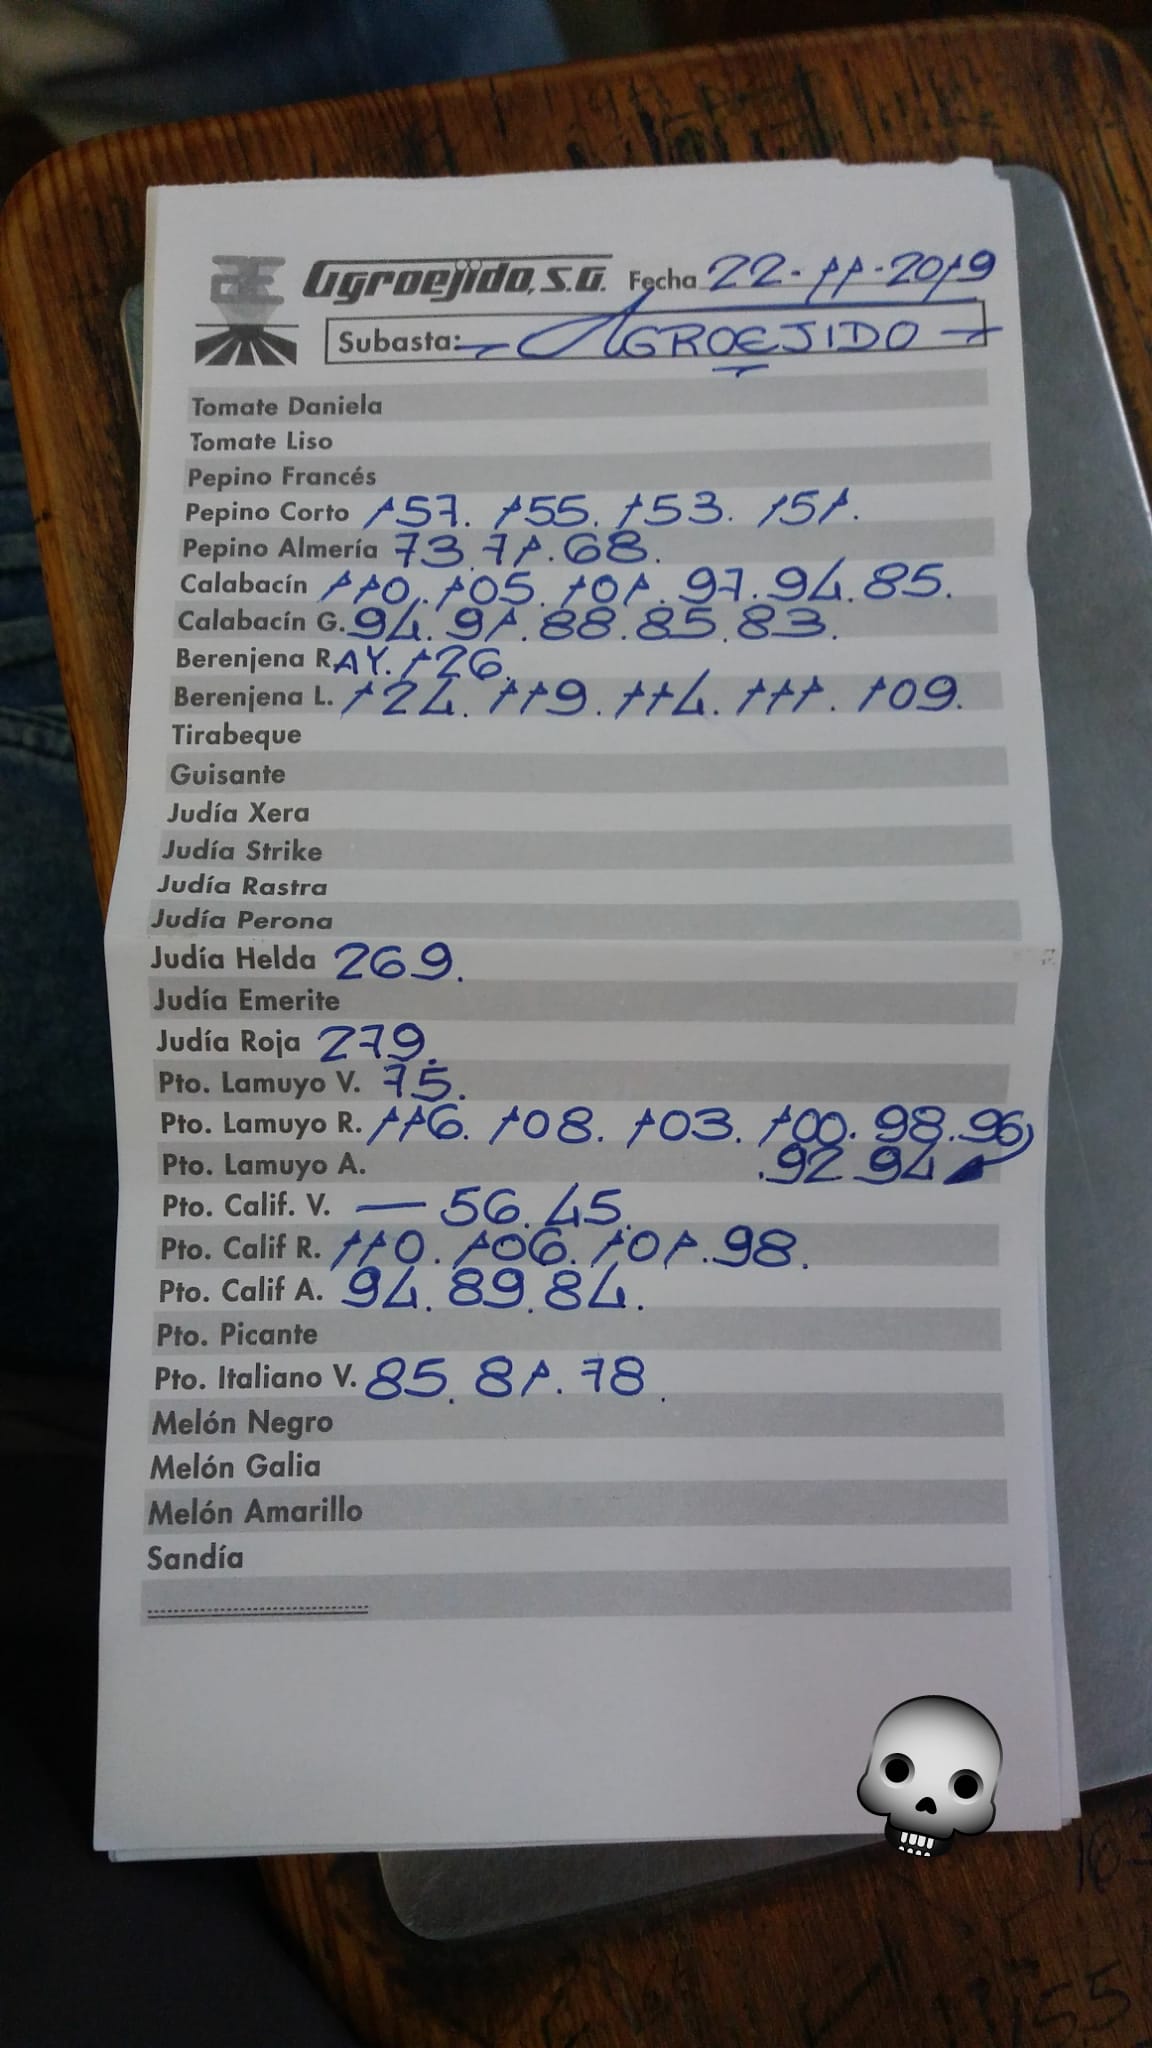 Agroejido, S.A. Fecha 22-11-2019
Subasta: AGROEJIDO
Tomate Daniela
Tomate Liso
Pepino Francés
Pepino Corto 157. 155. 153. 151.
Pepino Almería 73. 71. 68.
Calabacín 110. 105. 101. 97. 94. 85.
Calabacín G. 94. 91. 88. 85. 83.
Berenjena RAY. 126.
Berenjena L. 124. 119. 114. 111. 109.
Tirabeque
Guisante
Judía Xera
Judía Strike
Judía Rastra
Judía Perona
Judía Helda 269.
Judía Emerite
Judía Roja 279.
Pto. Lamuyo V. 75.
Pto. Lamuyo R. 116. 108. 103. 100. 98. 96
Pto. Lamuyo A. .92 94
Pto. Calif. V. — 56. 45.
Pto. Calif R. 110. 106. 101. 98.
Pto. Calif A. 94. 89. 84.
Pto. Picante
Pto. Italiano V. 85. 81. 78.
Melón Negro
Melón Galia
Melón Amarillo
Sandía